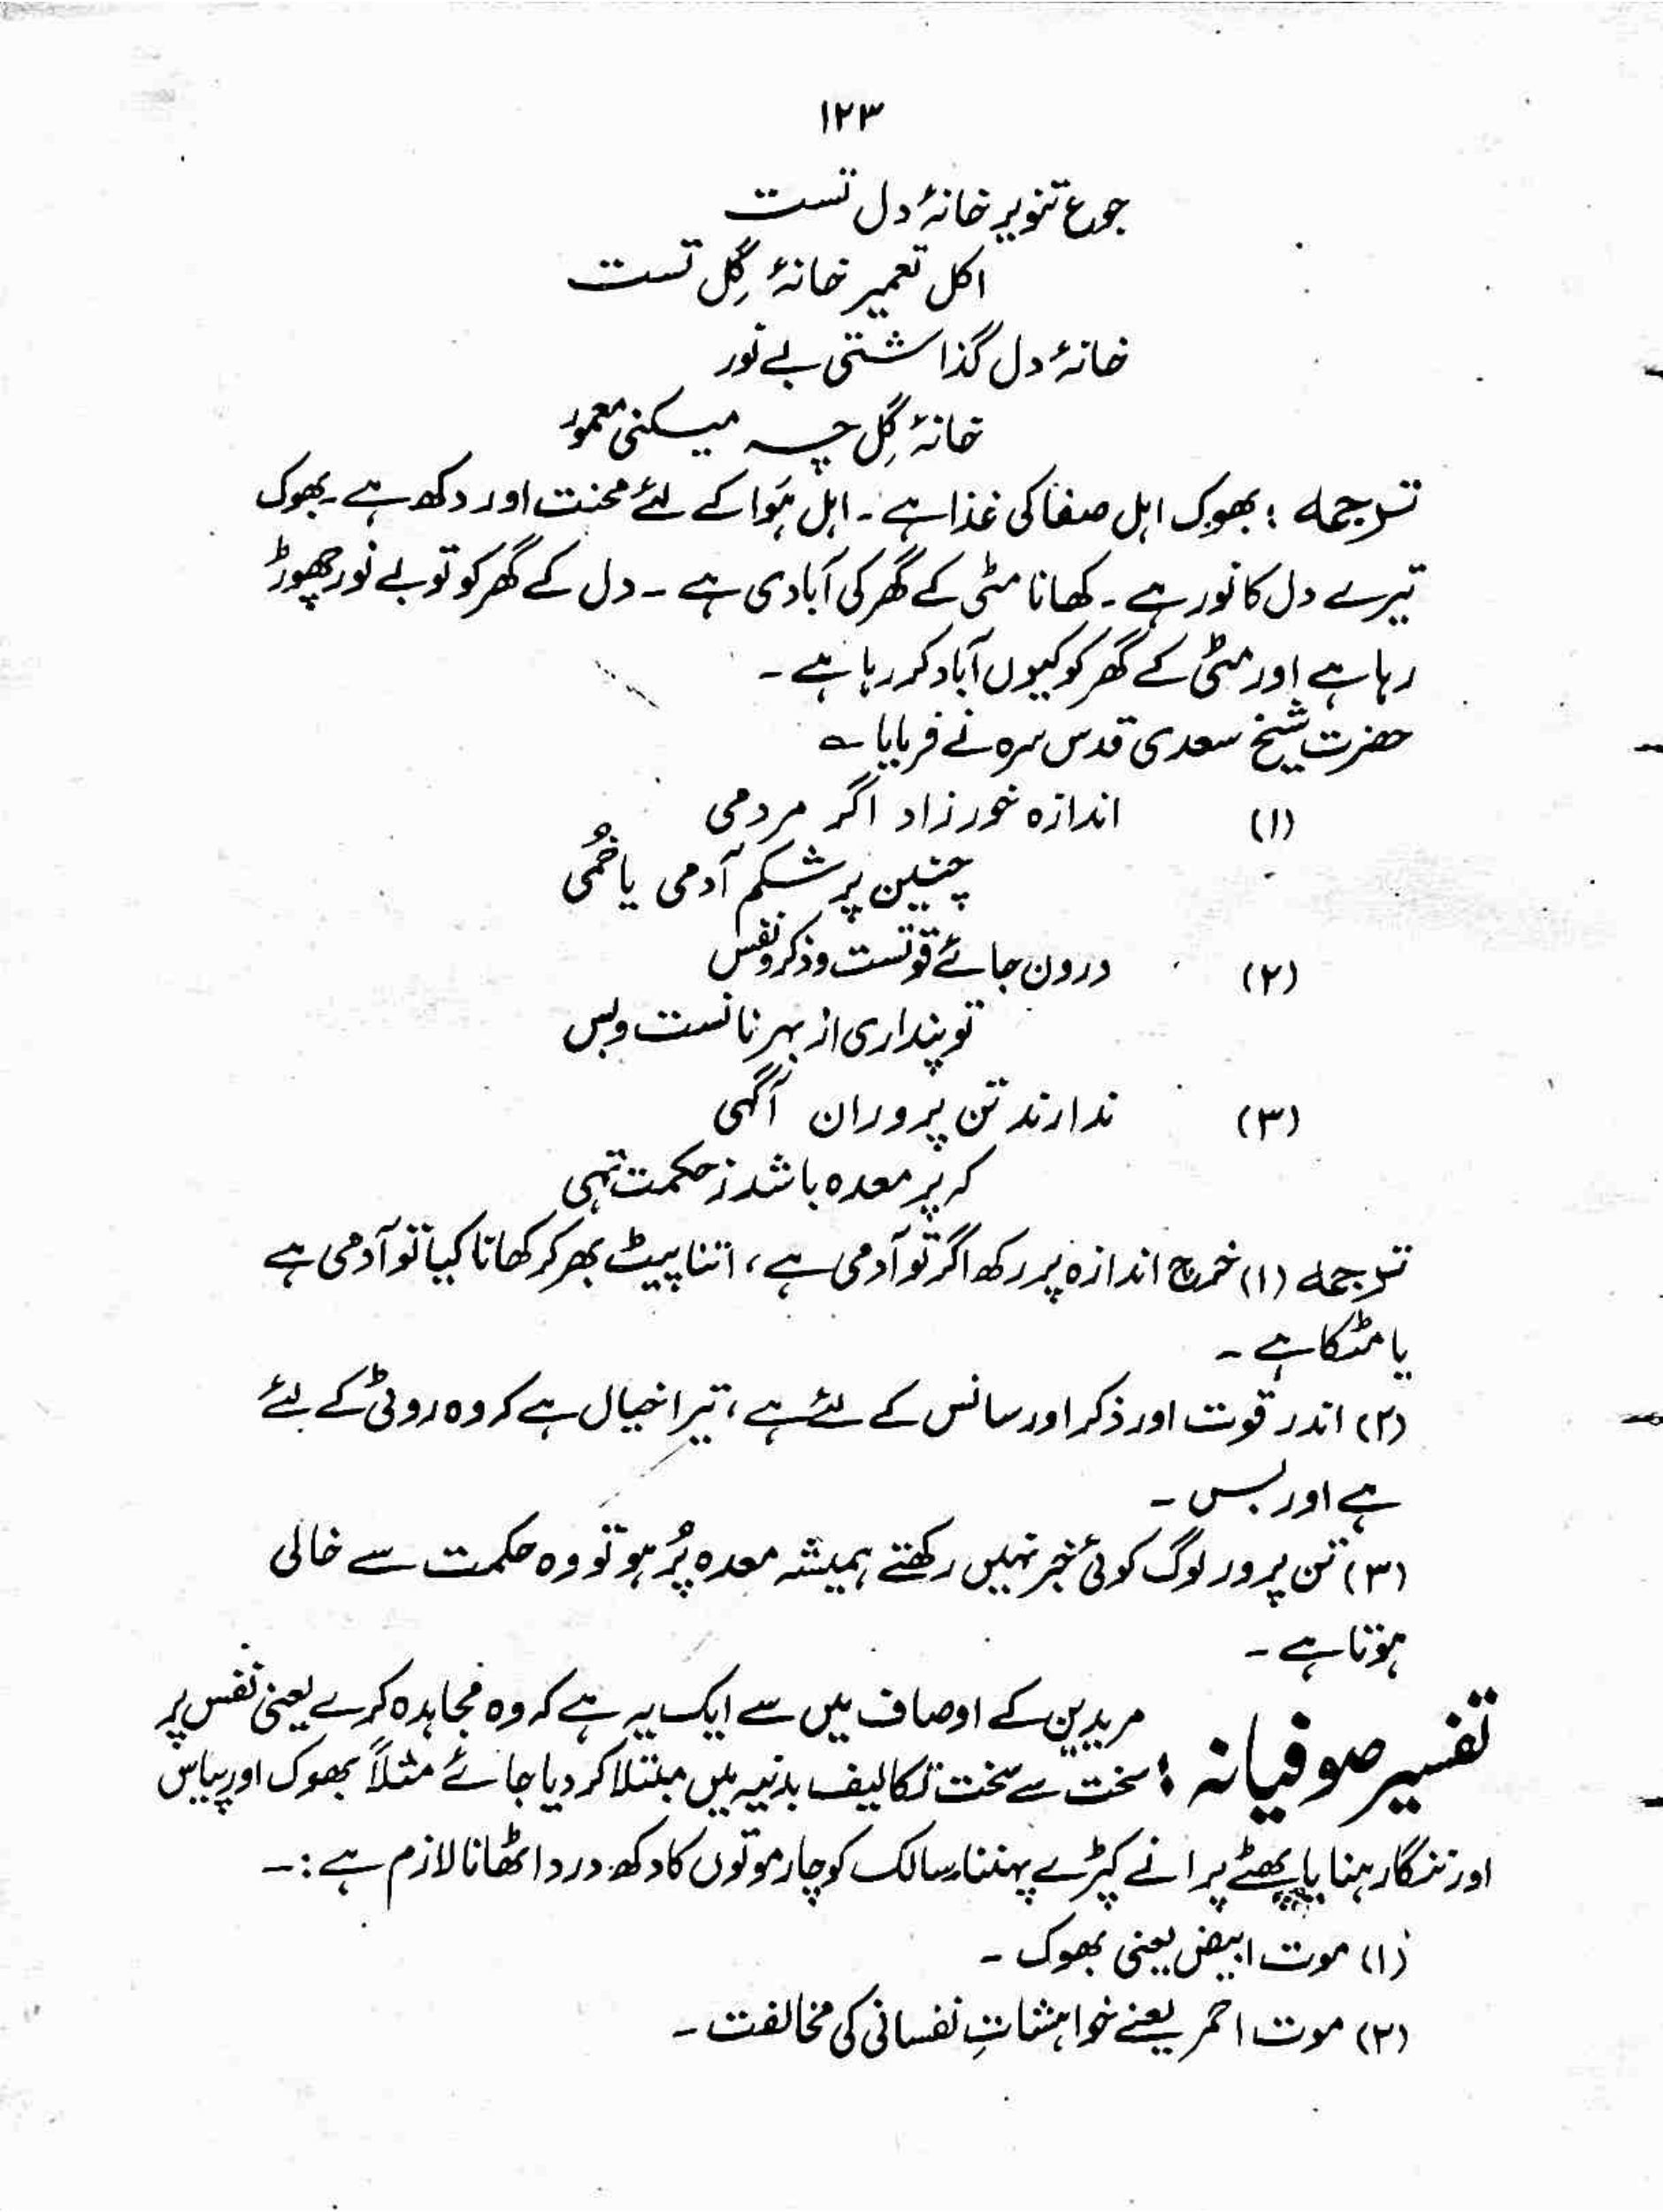 ۱۲۳
جوع تنویر خانۂ دل تست
اکل تعمیر خانۂ گِل تست
خانۂ دل گذاشتی بے نور
خانۂ گِل چہ میکنی معمور
ترجمہ : بھوک اہل صفا کی غذا ہے ۔ اہل ہَوا کے لئے محنت اور دکھ ہے ۔ بھوک
تیرے دل کا نور ہے ۔ کھانا مٹی کے گھر کی آبادی ہے ۔ دل کے گھر کو تو بے نور چھوڑ
رہا ہے اور مٹی کے گھر کو کیوں آباد کر رہا ہے ۔
حضرت شیخ سعدی قدس سرہ نے فرمایا ؎
(۱) اندازہ خور زاد اگر مردمی
چنیں پر شکم آدمی یا خُمی
(۲) درون جائے قوتست و ذکر و نفس
تو پنداری از بہر نانست و بس
(۳) ندارند تن پروران آگہی
کہ پر معدہ باشد ز حکمت تہی
ترجمہ (۱) خرچ اندازہ پر رکھ اگر تو آدمی ہے ، اتنا پیٹ بھر کر کھانا کیا تو آدمی ہے
یا مٹکا ہے ۔
(۲) اندر قوت اور ذکر اور سانس کے لئے ہے ، تیرا خیال ہے کہ وہ روٹی کے لئے
ہے اور بس ۔
(۳) تن پرور لوگ کوئی خبر نہیں رکھتے ہمیشہ معدہ پُر ہو تو وہ حکمت سے خالی
ہوتا ہے ۔
تفسیر صوفیانہ : مریدین کے اوصاف میں سے ایک یہ ہے کہ وہ مجاہدہ کرے یعنی نفس پر
سخت سے سخت تکالیف بدنیہ میں مبتلا کر دیا جائے مثلاً بھوک اور پیاس
اور ننگا رہنا یا پھٹے پرانے کپڑے پہننا سالک کو چار موتوں کا دکھ درد اٹھانا لازم ہے :۔
(۱) موت ابیض یعنی بھوک ۔
(۲) موت احمر یعنے خواہشاتِ نفسانی کی مخالفت ۔